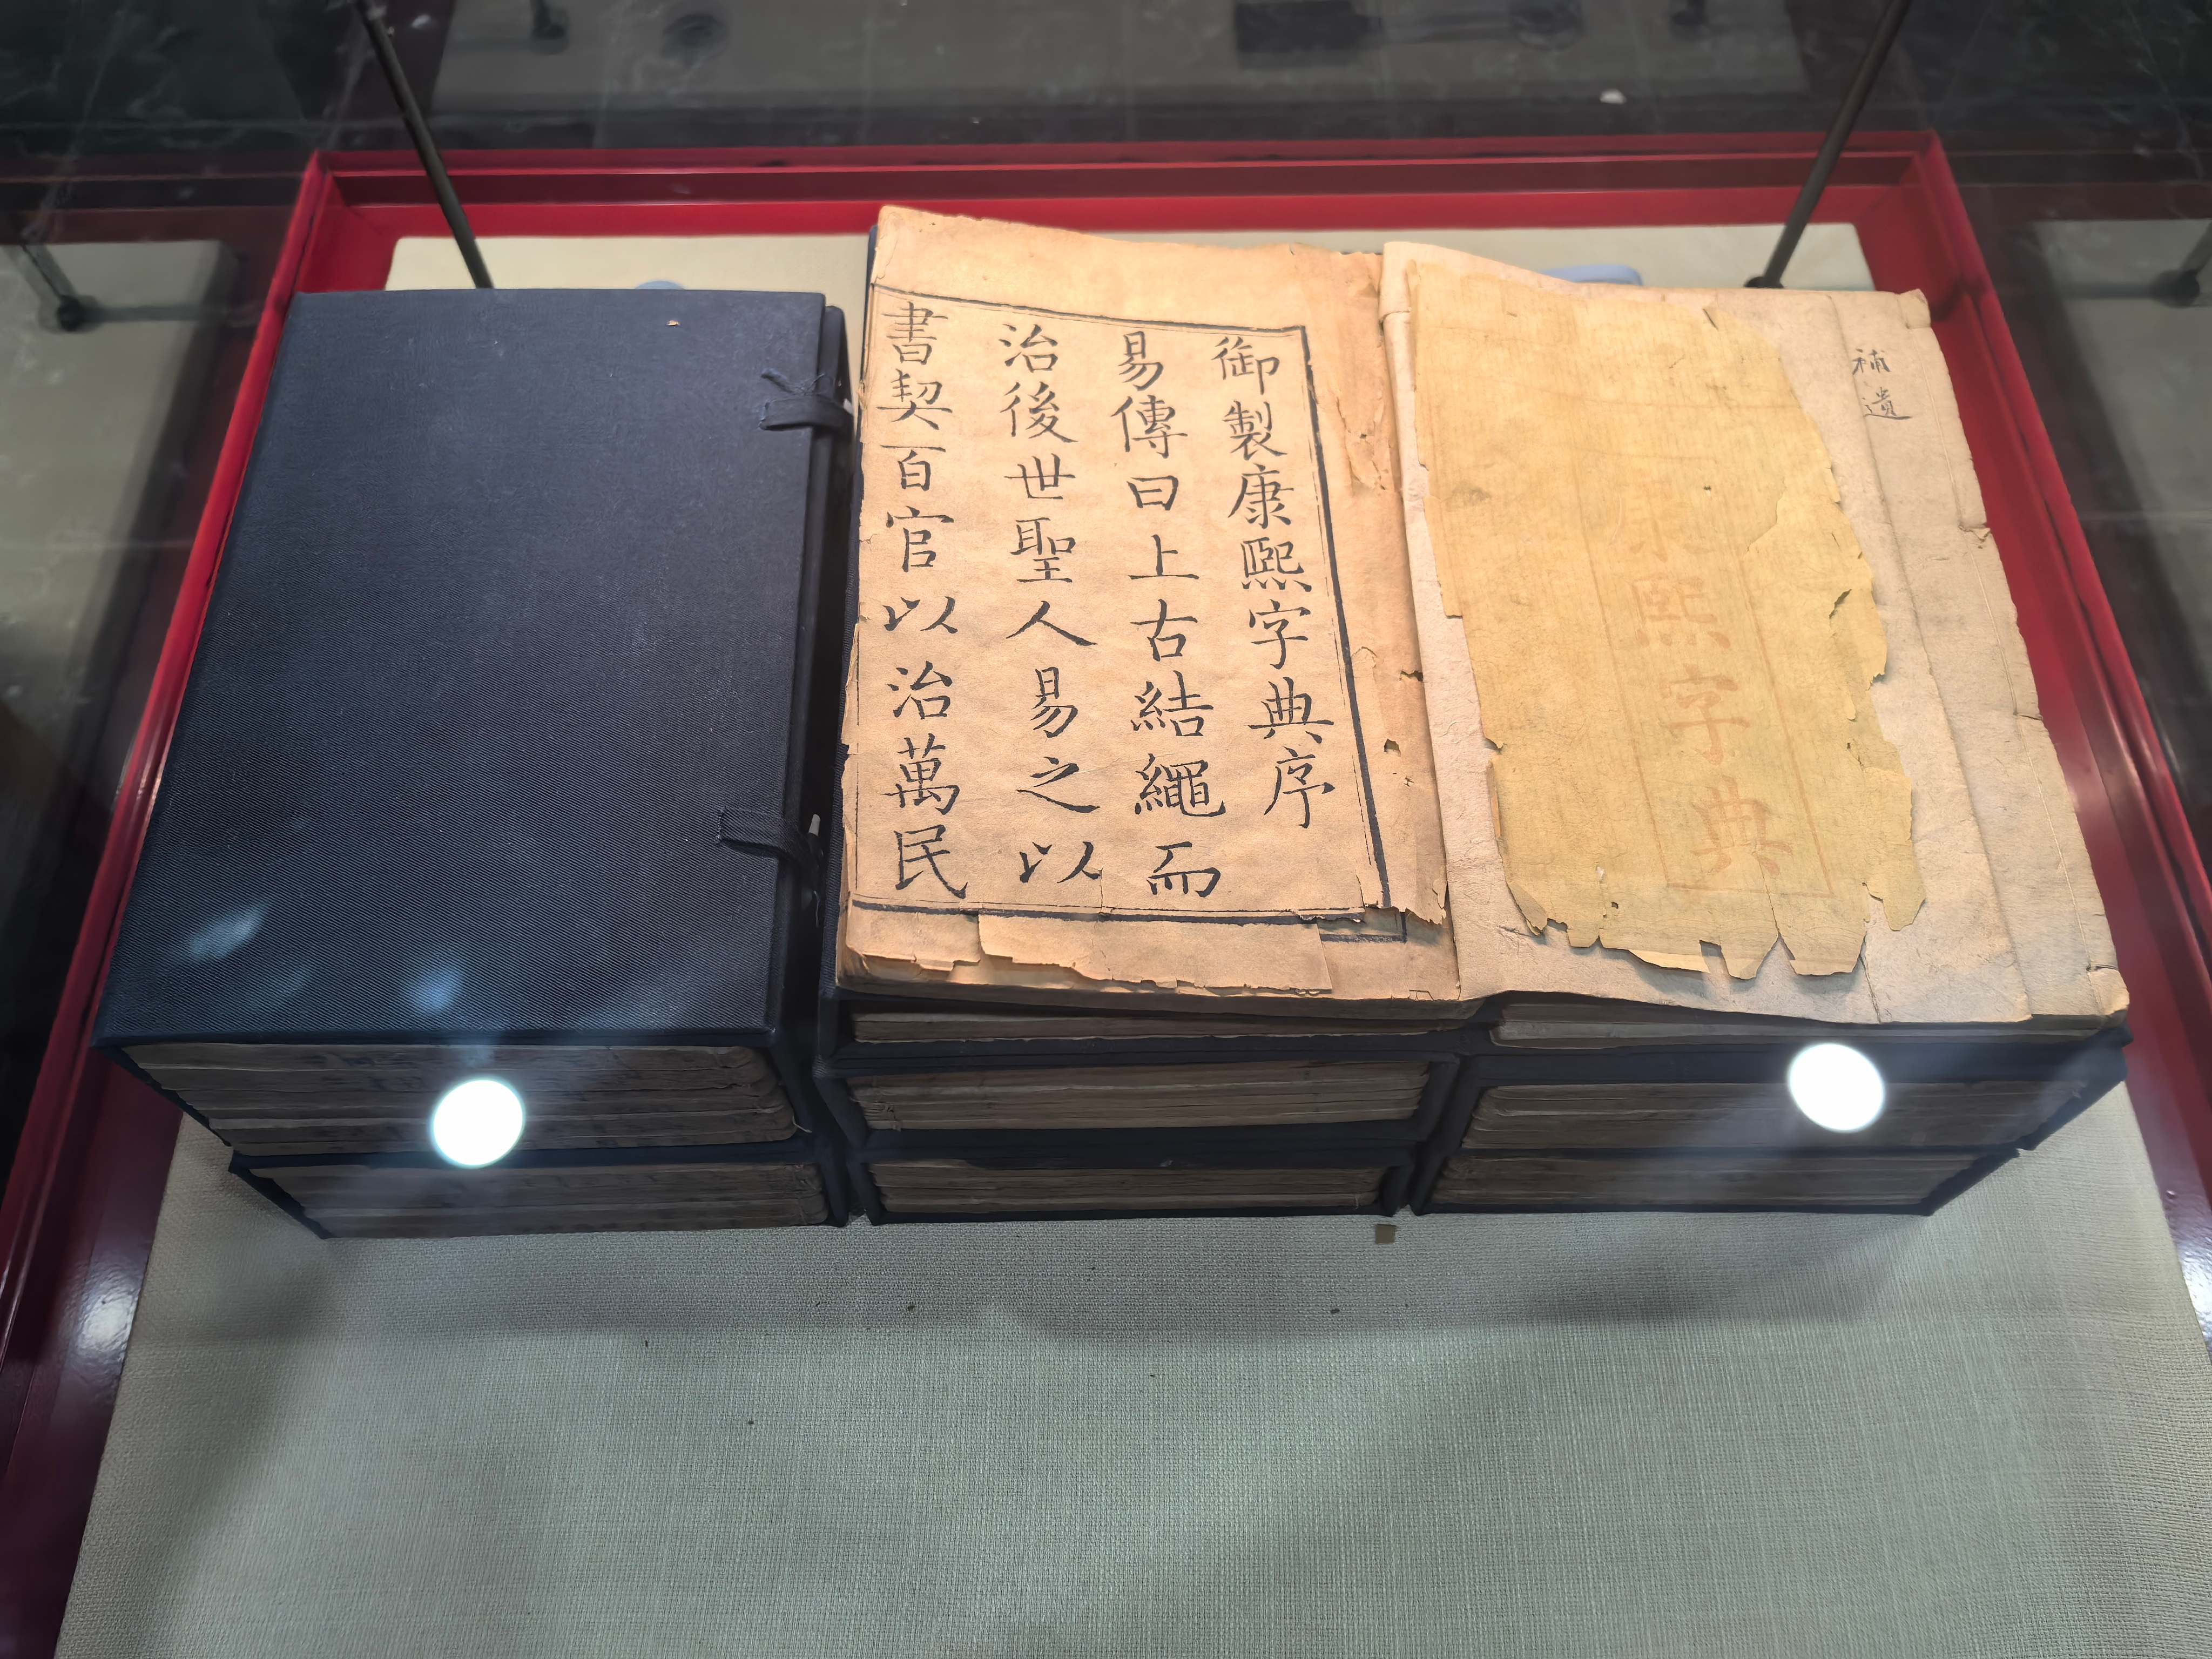 補遺
康熙字典
御製康熙字典序
易傳曰上古結繩而
治後世聖人易之以
書契百官以治萬民